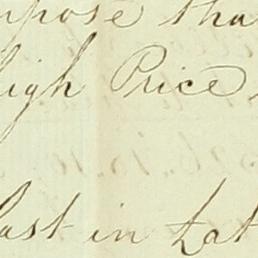 upose tha
high Price
Past in Lat